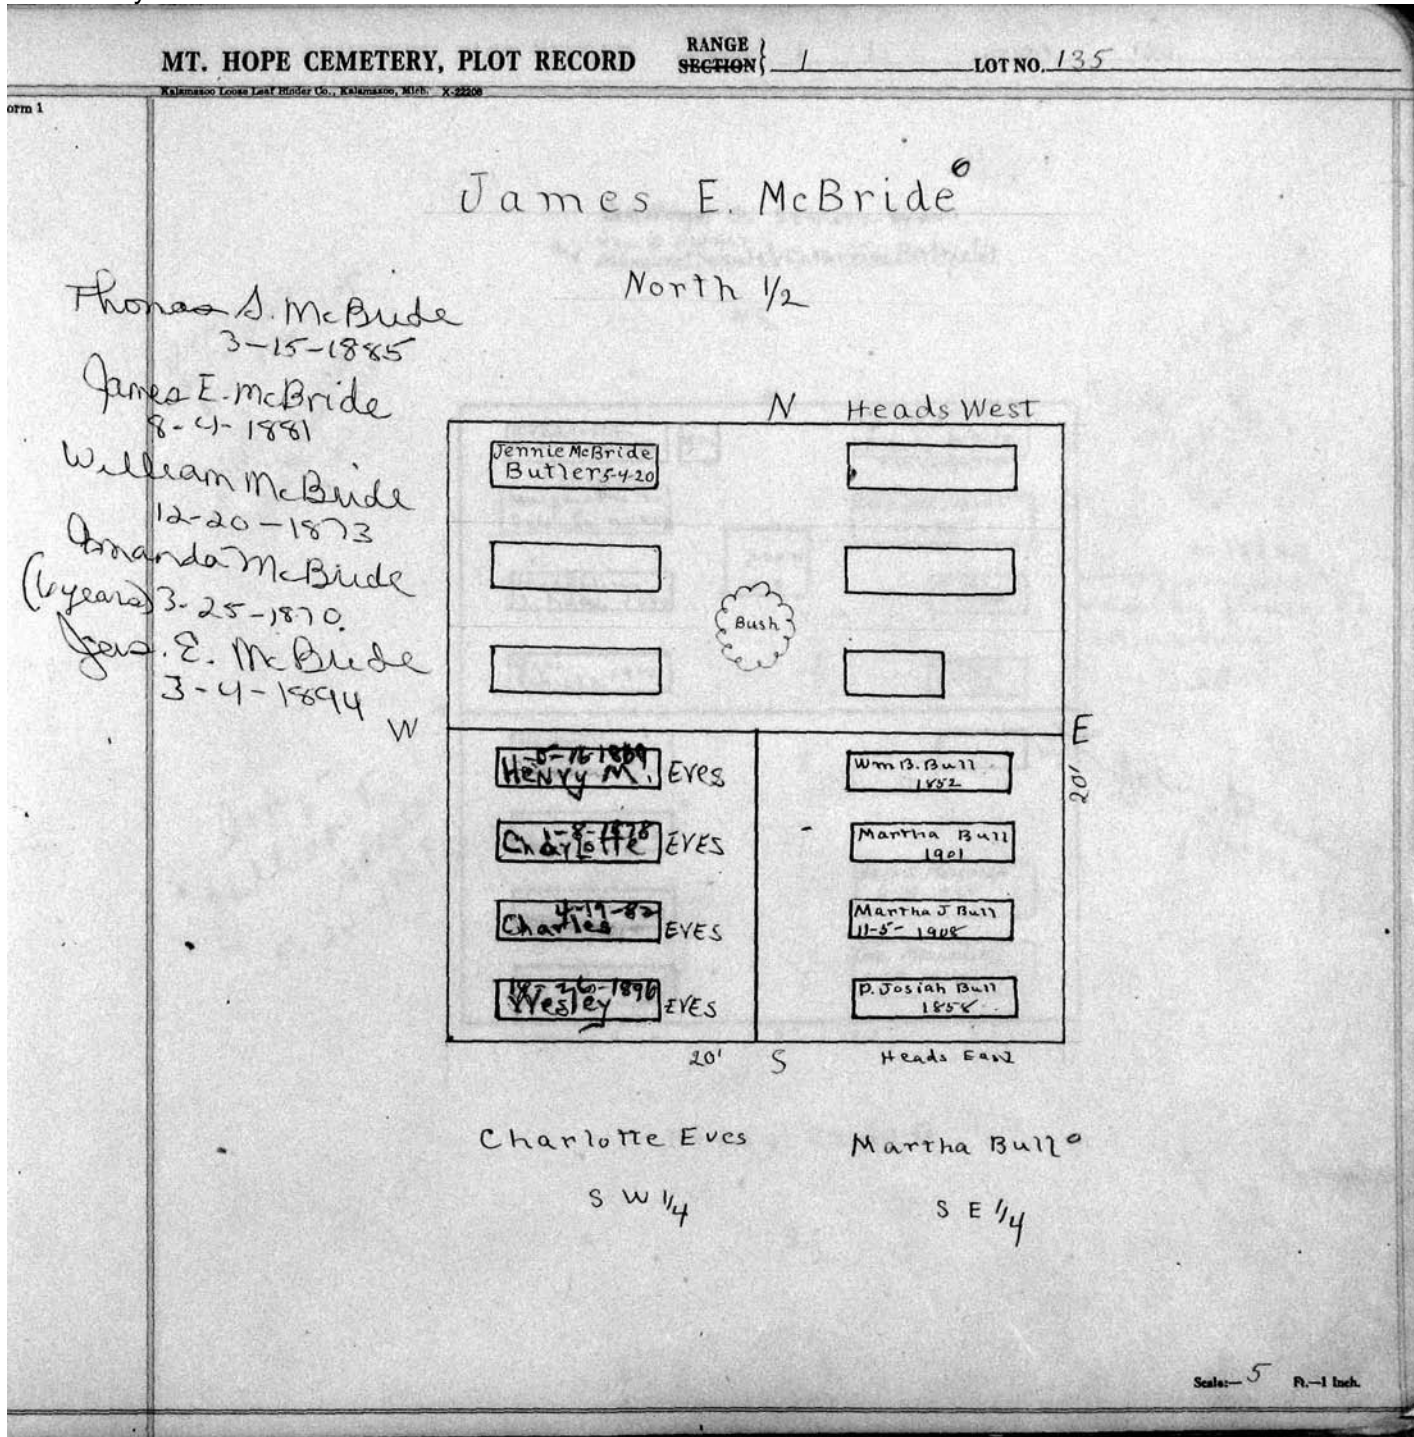 MT. HOPE CEMETERY, PLOT RECORD
RANGE
SECTION 1
LOT NO. 135
Kalamazoo Loose Leaf Binder Co., Kalamazoo, Mich. X-22208
orm 1
James E. McBride
North 1/2
Thomas S. McBride
3-15-1885
James E. McBride
8-4-1881
William McBride
12-20-1873
Amanda McBride
(6 years) 3-25-1870.
E. McBride
3-4-1894
N Heads West
Jennie McBride
Butler 5-4-20
Bush
W
E
20'
Henry M. Eves
Wm B. Bull
1852
1-8-1878
Charlotte EVES
Martha Bull
1901
4-19-82
Charles EVES
Martha J Bull
11-5-1908
1896
Wesley EVES
P. Josiah Bull
1858
20' S Heads East
Charlotte Eves
Martha Bull
S W 1/4
S E 1/4
Scale:— 5 Ft.—1 Inch.